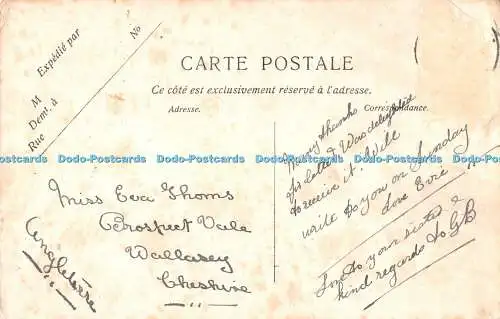 Expédié par
No
M
Demt. à
Rue
CARTE POSTALE
Ce côté est exclusivement réservé à l'adresse.
Adresse.
Correspondance.
Dodo-Postcards Dodo-Postcards Dodo-Postcards Dodo-Postcards Dodo-Postcards
Miss Eva Thoms
Prospect Vale
Wallasey
Cheshire
Angleterre
Many thanks
for letter & Was delighted
to receive it. Will
write to you on Sunday
love Evie
love to your sister &
kind regards to GB
Dodo-Postcards Dodo-Postcards Dodo-Postcards Dodo-Postcards Dodo-Postcards